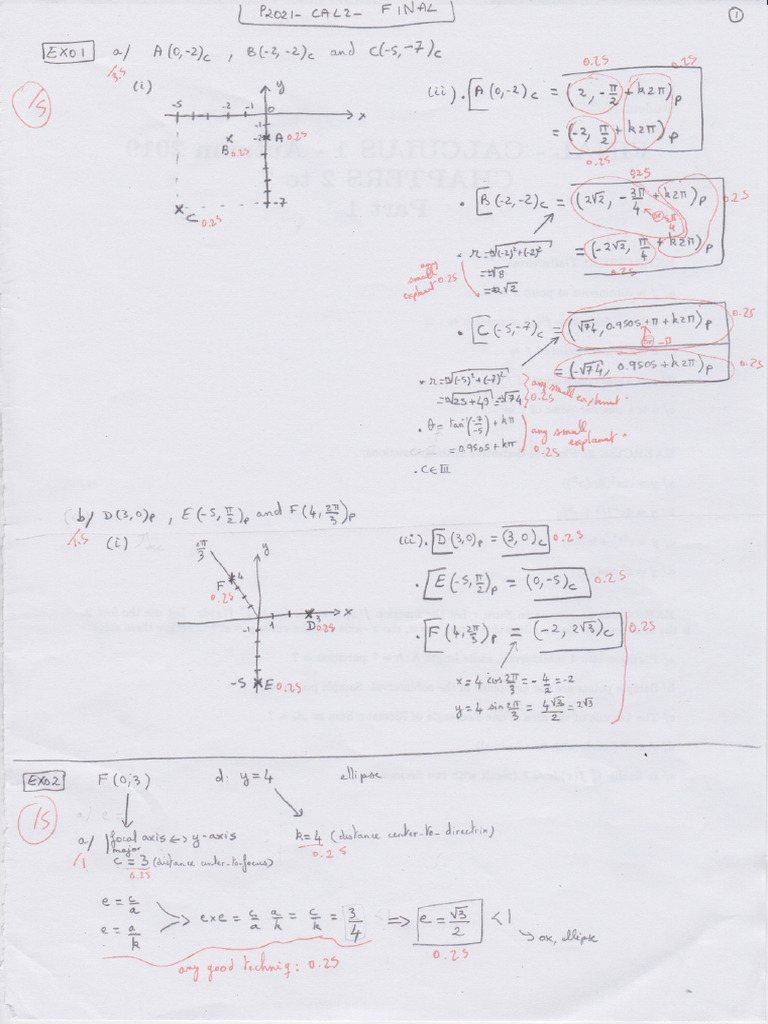 P2021- CAL2- FINAL
1
EXO1 a/ A(0,-2)c , B(-2,-2)c and C(-5,-7)c
/3.5
/5
(i)
y
x
-5 -2 -1 0
-1
-2 A 0.25
B 0.25
-7
C 0.25
0.25 0.25
(ii) . A(0,-2)c = (2, -π/2 + k2π)p
= (-2, π/2 + k2π)p
0.25
0.25
. B(-2,-2)c = (2√2, -3π/4 + k2π)p 0.25
or 5π/4
= (-2√2, π/4 + k2π)p
0.25
* r = √(-2)²+(-2)²
= √8
= 2√2
any small explanat° 0.25
. C(-5,-7)c = (√74, 0.9505+π + k2π)p 0.25
or -π
= (-√74, 0.9505 + k2π)p 0.25
* r = √(-5)²+(-7)²
= √25+49 = √74
any small explanat° 0.25
. θ = tan⁻¹(-7/-5) + kπ
= 0.9505 + kπ
any small explanat° 0.25
. C ∈ III
b/ D(3,0)p , E(-5, π/2)p and F(4, 2π/3)p
/1.5
(i)
2π/3
y
F 4
0.25
x
1 3
D 0.25
-1
-5 E 0.25
(ii) . D(3,0)p = (3,0)c 0.25
. E(-5, π/2)p = (0,-5)c 0.25
. F(4, 2π/3)p = (-2, 2√3)c 0.25
x = 4 cos 2π/3 = -4/2 = -2
y = 4 sin 2π/3 = 4√3/2 = 2√3
EXO2 F(0;3) d: y=4 ellipse
/5
a/ focal axis <-> y-axis
major
/1
c = 3 (distance center-to-focus)
0.25
k=4 (distance center-to-directrix)
0.25
e = c/a
e = a/k
exe = c/a a/k = c/k = 3/4 => e = √3/2 <1
ok, ellipse
any good techniq: 0.25
0.25